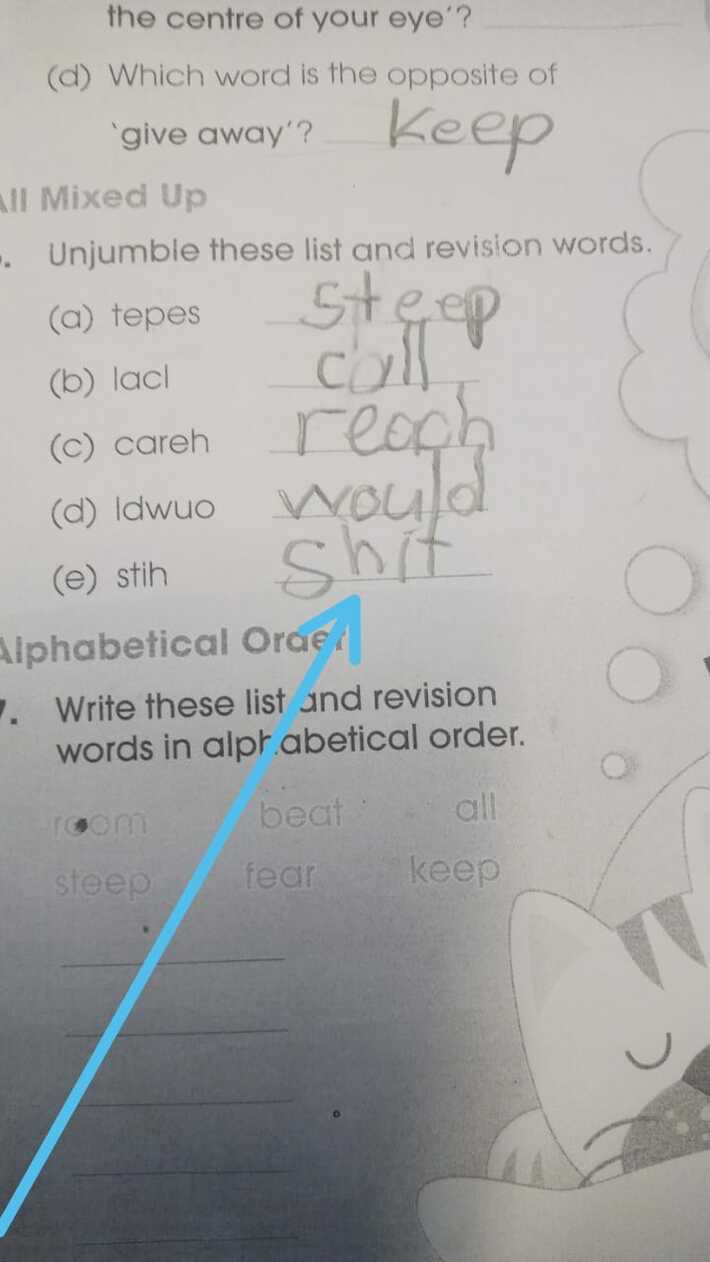 the centre of your eye'?
(d) Which word is the opposite of
'give away'? Keep
All Mixed Up
. Unjumble these list and revision words.
(a) tepes steep
(b) lacl call
(c) careh reach
(d) ldwuo would
(e) stih shit
Alphabetical Order
7. Write these list and revision
words in alphabetical order.
room beat all
steep fear keep